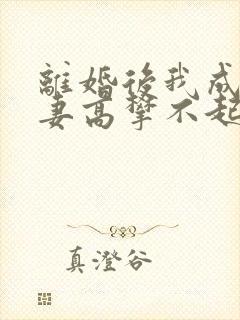 離婚後我成
妻高攀不起
真澄谷